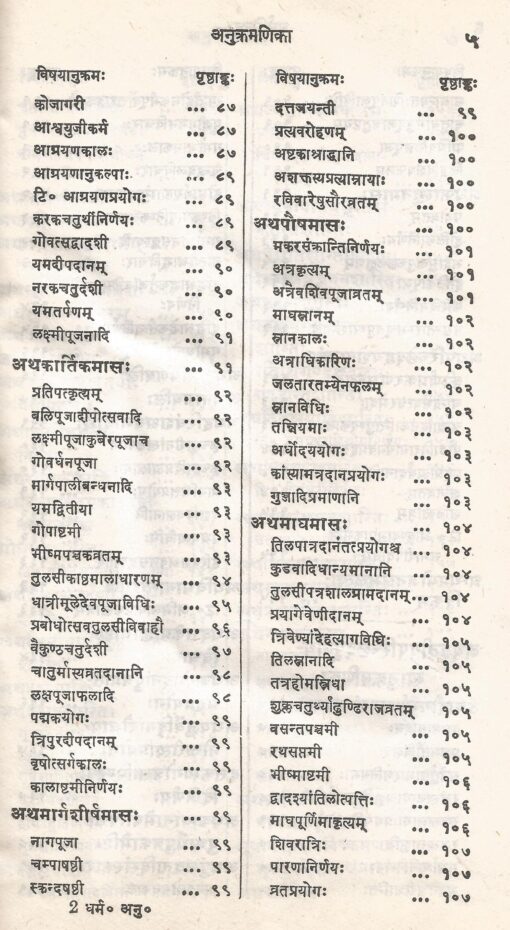 अनुक्रमणिका ५
विषयानुक्रमः पृष्ठाङ्कः
कोजागरी ... ८७
आश्वयुजीकर्म ... ८७
आग्रयणकालः ... ८७
आग्रयणानुकल्पाः ... ८९
टि० आग्रयणप्रयोगः ... ८९
करकचतुर्थीनिर्णयः ... ८९
गोवत्सद्वादशी ... ८९
यमदीपदानम् ... ९०
नरकचतुर्दशी ... ९०
यमतर्पणम् ... ९०
लक्ष्मीपूजनादि ... ९१
अथकार्तिकमासः ... ९१
प्रतिपत्कृत्यम् ... ९२
बलिपूजादीपोत्सवादि ... ९२
लक्ष्मीपूजाकुबेरपूजाच ... ९२
गोवर्धनपूजा ... ९२
मार्गपालीबन्धनादि ... ९३
यमद्वितीया ... ९३
गोपाष्टमी ... ९३
भीष्मपञ्चकव्रतम् ... ९३
तुलसीकाष्ठमालाधारणम् ... ९४
धात्रीमूलेदेवपूजाविधिः ... ९५
प्रबोधोत्सवतुलसीविवाहौ ... ९६
वैकुण्ठचतुर्दशी ... ९७
चातुर्मास्यव्रतदानानि ... ९८
लक्षपूजाफलादि ... ९८
पद्मकयोगः ... ९९
त्रिपुरदीपदानम् ... ९९
वृषोत्सर्गकालः ... ९९
कालाष्टमीनिर्णयः ... ९९
अथमार्गशीर्षमासः ... ९९
नागपूजा ... ९९
चम्पाषष्ठी ... ९९
स्कन्दषष्ठी ... ९९
2 धर्म० अनु०
विषयानुक्रमः पृष्ठाङ्कः
दत्तजयन्ती ... ९९
प्रत्यवरोहणम् ... १००
अष्टकाश्राद्धानि ... १००
अष्टकास्थप्रत्याम्नायाः ... १००
रविवारेषुसौरव्रतम् ... १००
अथपौषमासः ... १००
मकरसंक्रान्तिनिर्णयः ... १०१
अत्रकृत्यम् ... १०१
अत्रैवशिवपूजाव्रतम् ... १०१
माघस्नानम् ... १०२
स्नानकालः ... १०२
अत्राधिकारिणः ... १०२
जलतारतम्येनफलम् ... १०२
स्नानविधिः ... १०२
तन्नियमाः ... १०३
अर्धोदययोगः ... १०३
कांस्यामत्रदानप्रयोगः ... १०३
गुञ्जादिप्रमाणानि ... १०३
अथमाघमासः ... १०४
तिलपात्रदानंतत्प्रयोगश्च ... १०४
कुडवादिधान्यमानानि ... १०४
तुलसीपत्रशालग्रामदानम् ... १०४
प्रयागेवेणीदानम् ... १०४
त्रिवेण्यांदेहत्यागविधिः ... १०५
तिलस्नानादि ... १०५
तत्रहोमस्त्रिधा ... १०५
शुक्लचतुर्थ्यांढुण्ढिराजव्रतम् ... १०५
वसन्तपञ्चमी ... १०५
रथसप्तमी ... १०५
भीष्माष्टमी ... १०६
द्वादश्यांतिलोत्पत्तिः ... १०६
माघपूर्णिमाकृत्यम् ... १०६
शिवरात्रिः ... १०७
पारणानिर्णयः ... १०७
व्रतप्रयोगः ... १०७